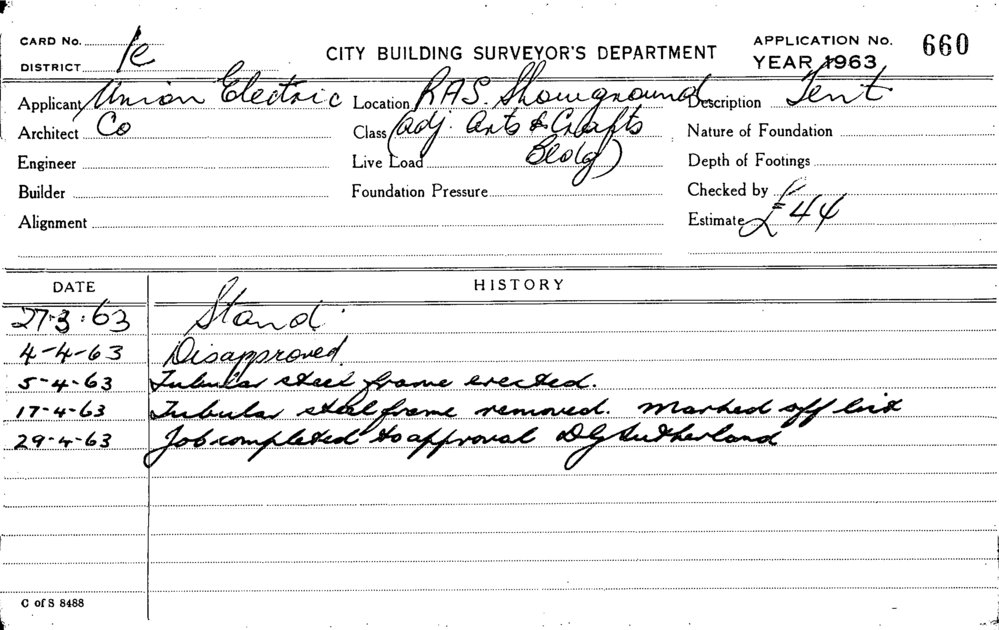 CARD No. 1e
DISTRICT
CITY BUILDING SURVEYOR'S DEPARTMENT
APPLICATION No. 660
YEAR 1963
Applicant Union Electric Location RAS. Showground Description Tent
Architect Co Class (adj. Arts & Crafts Nature of Foundation
Engineer Live Load Bldg) Depth of Footings
Builder Foundation Pressure Checked by
Alignment Estimate £44
DATE HISTORY
27.3.63 Stand
4-4-63 Disapproved
5-4-63 Tubular steel frame erected.
17-4-63 Tubular steel frame removed. Marked off list
29-4-63 Job completed to approval DG Sutherland
C of S 8488